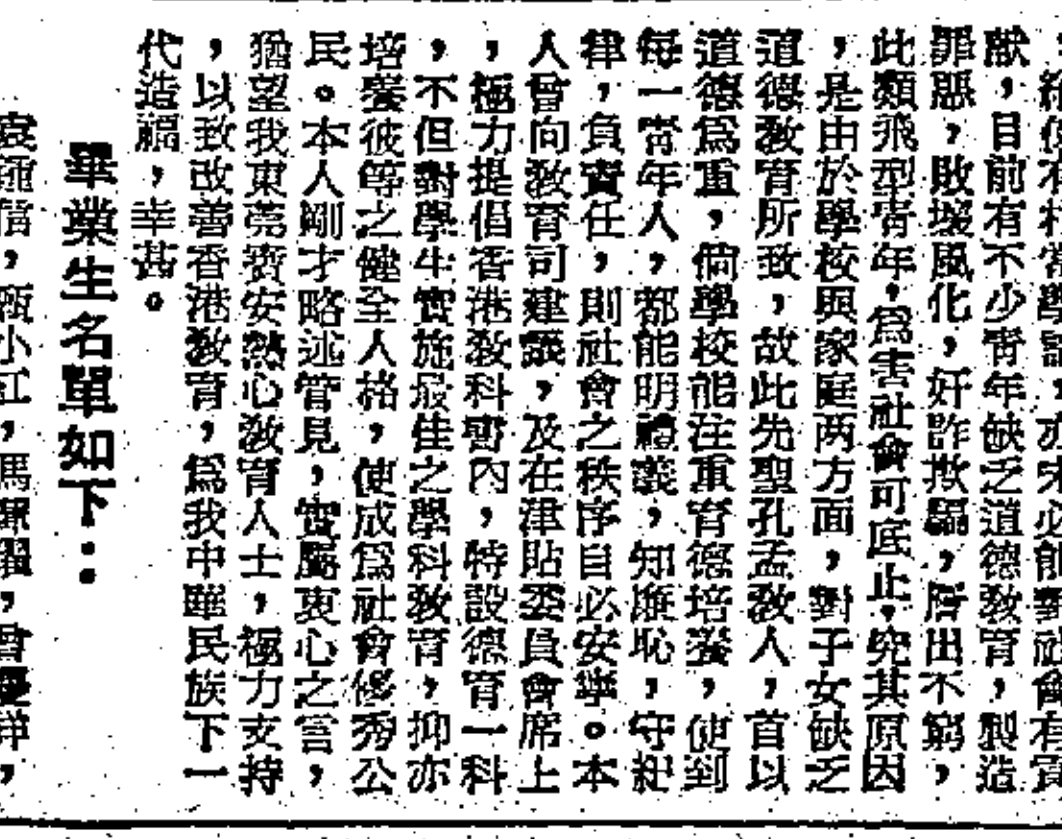 縱使有學識，亦未必能對社會有貢
献，目前有不少青年缺乏道德教育，製造
罪惡，敗壞風化，奸詐欺騙，層出不窮，
此類飛型青年，爲害社會可底止，究其原因
，是由於學校與家庭两方面，對子女缺乏
道德教育所致，故此先聖孔孟教人，首以
道德爲重，倘學校能注重育德培養，使到
每一青年人，都能明禮義，知廉恥，守紀
律，負責任，則社會之秩序自必安寧。本
人曾向教育司建議，及在津貼委員會席上
，極力提倡香港教科書內，特設德育一科
，不但對學生實施最佳之學科教育，抑亦
培養彼等之健全人格，使成爲社會修秀公
民。本人剛才略述管見，實屬衷心之言，
猶望我東莞寶安熱心教育人士，極力支持
，以致改善香港教育，爲我中華民族下一
代造福，幸甚。
畢業生名單如下：